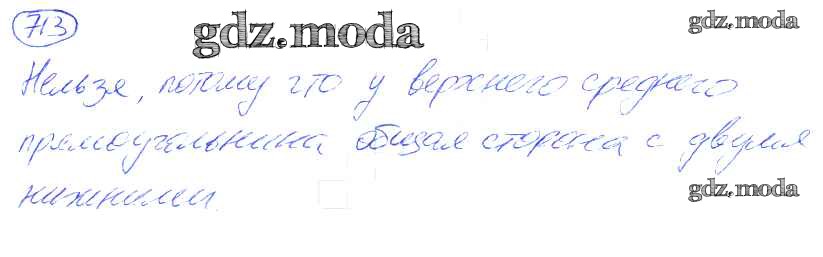 713
gdz.moda
gdz.moda
Нельзя, потому что у верхнего среднего
прямоугольника общая сторона с двумя
нижними.
gdz.moda